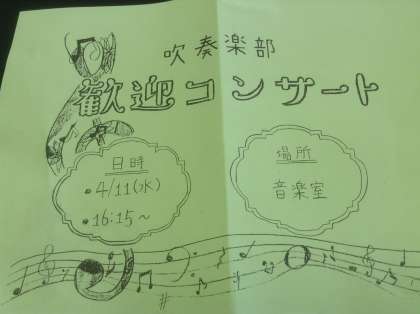 吹奏楽部
歓迎コンサート
日時
•4/11(水)
•16:15～
場所
音楽室